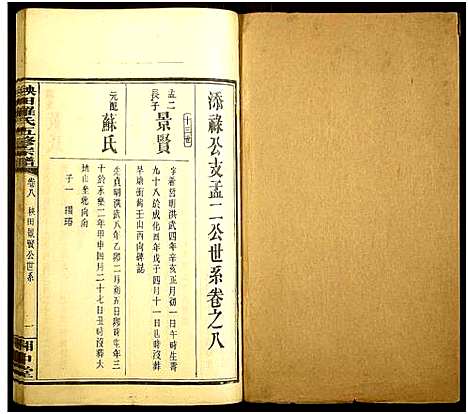 添祿公支孟二公世系卷之八
十三世
孟二
長子
景賢
字善明洪武四年辛亥正月初一日午時生壽
九十八於成化四年戊子四月十一日沒葬
山西向碑誌
元配
蘇氏
貞明洪武八年乙卯二月初五日卯時生年三
十於永樂二年甲申四月二十七日丑時沒葬大
山坐乾向南
子一
秧田羅氏五修宗譜
卷八
秧田景賢公世系
一